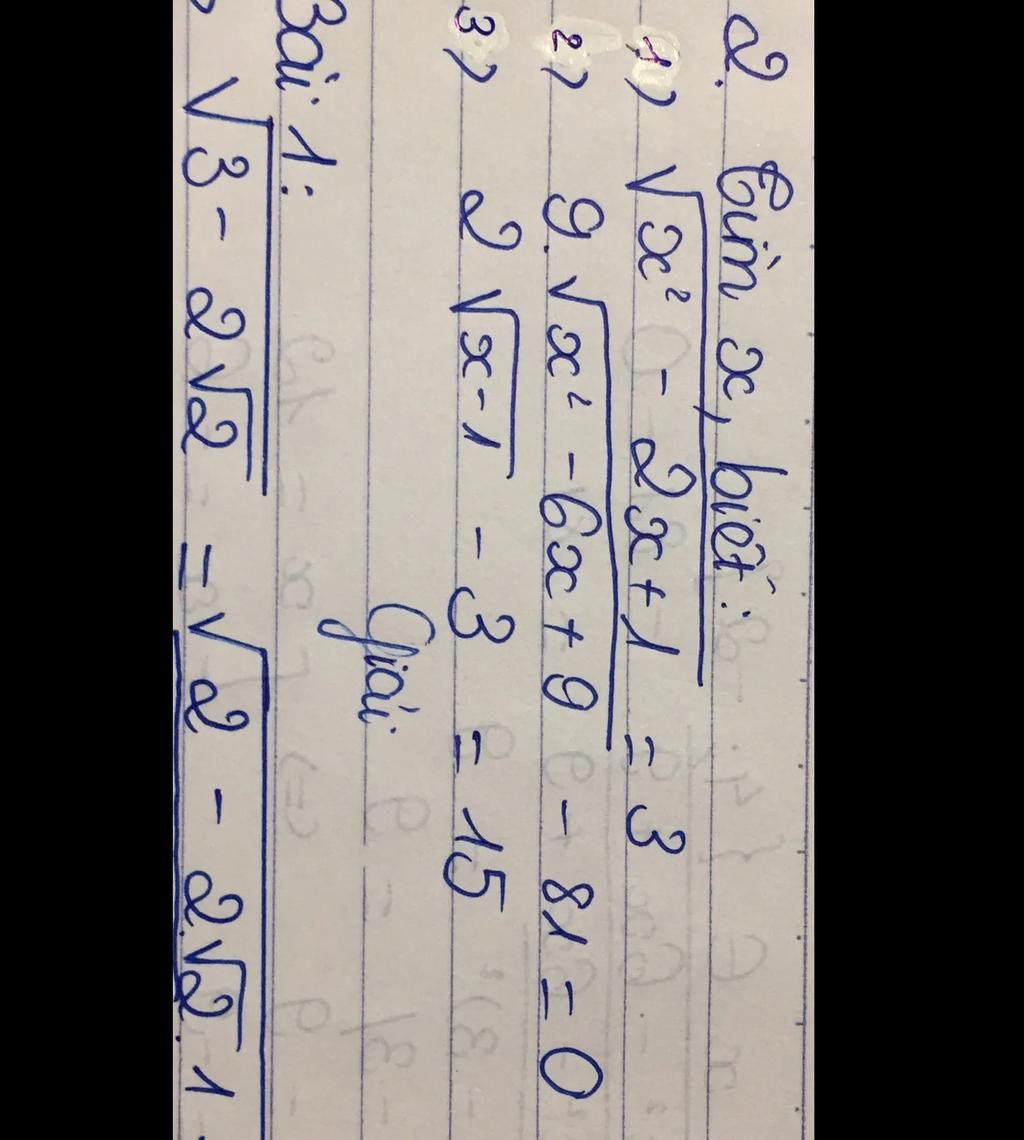 2. Tìm x, biết:
1) √(x² - 2x+1) = 3
2) 9.√(x² -6x+9) - 81=0
3) 2√(x-1) - 3 = 15
Giải
Bài 1:
√(3 - 2√2) = √(2 - 2.√2.1